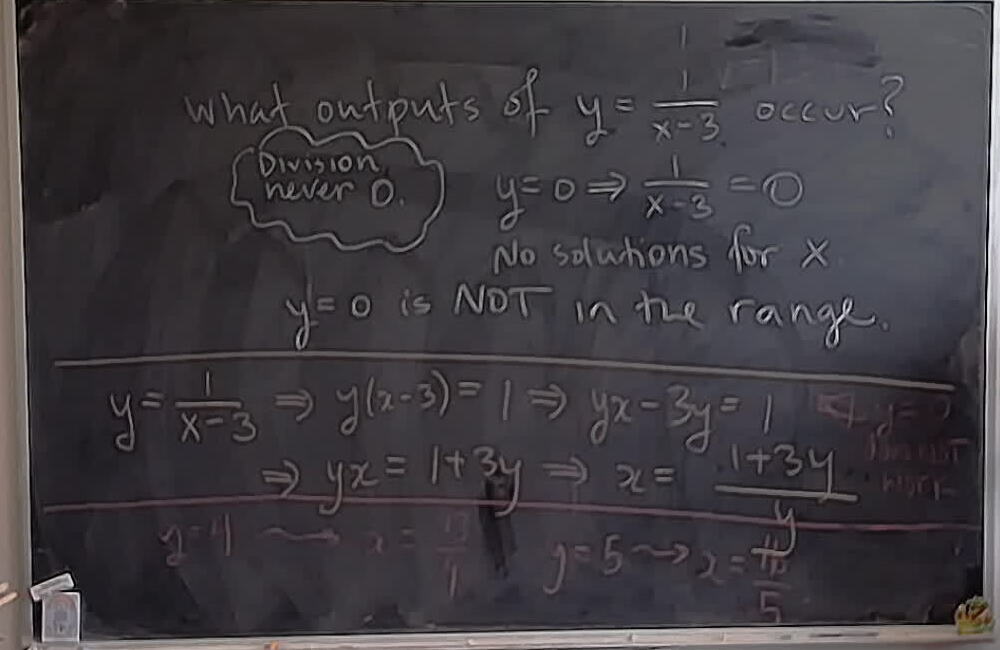 What outputs of y = 1/(x-3) occur?
Division never 0.
y=0 ⇒ 1/(x-3) = 0
No solutions for x.
y=0 is NOT in the range.
y = 1/(x-3) ⇒ y(x-3) = 1 ⇒ yx - 3y = 1
y=0
Does NOT
work
⇒ yx = 1+3y ⇒ x = (1+3y)/y
y=4 ⇝ x = 13/
y=5 ⇝ x = /5